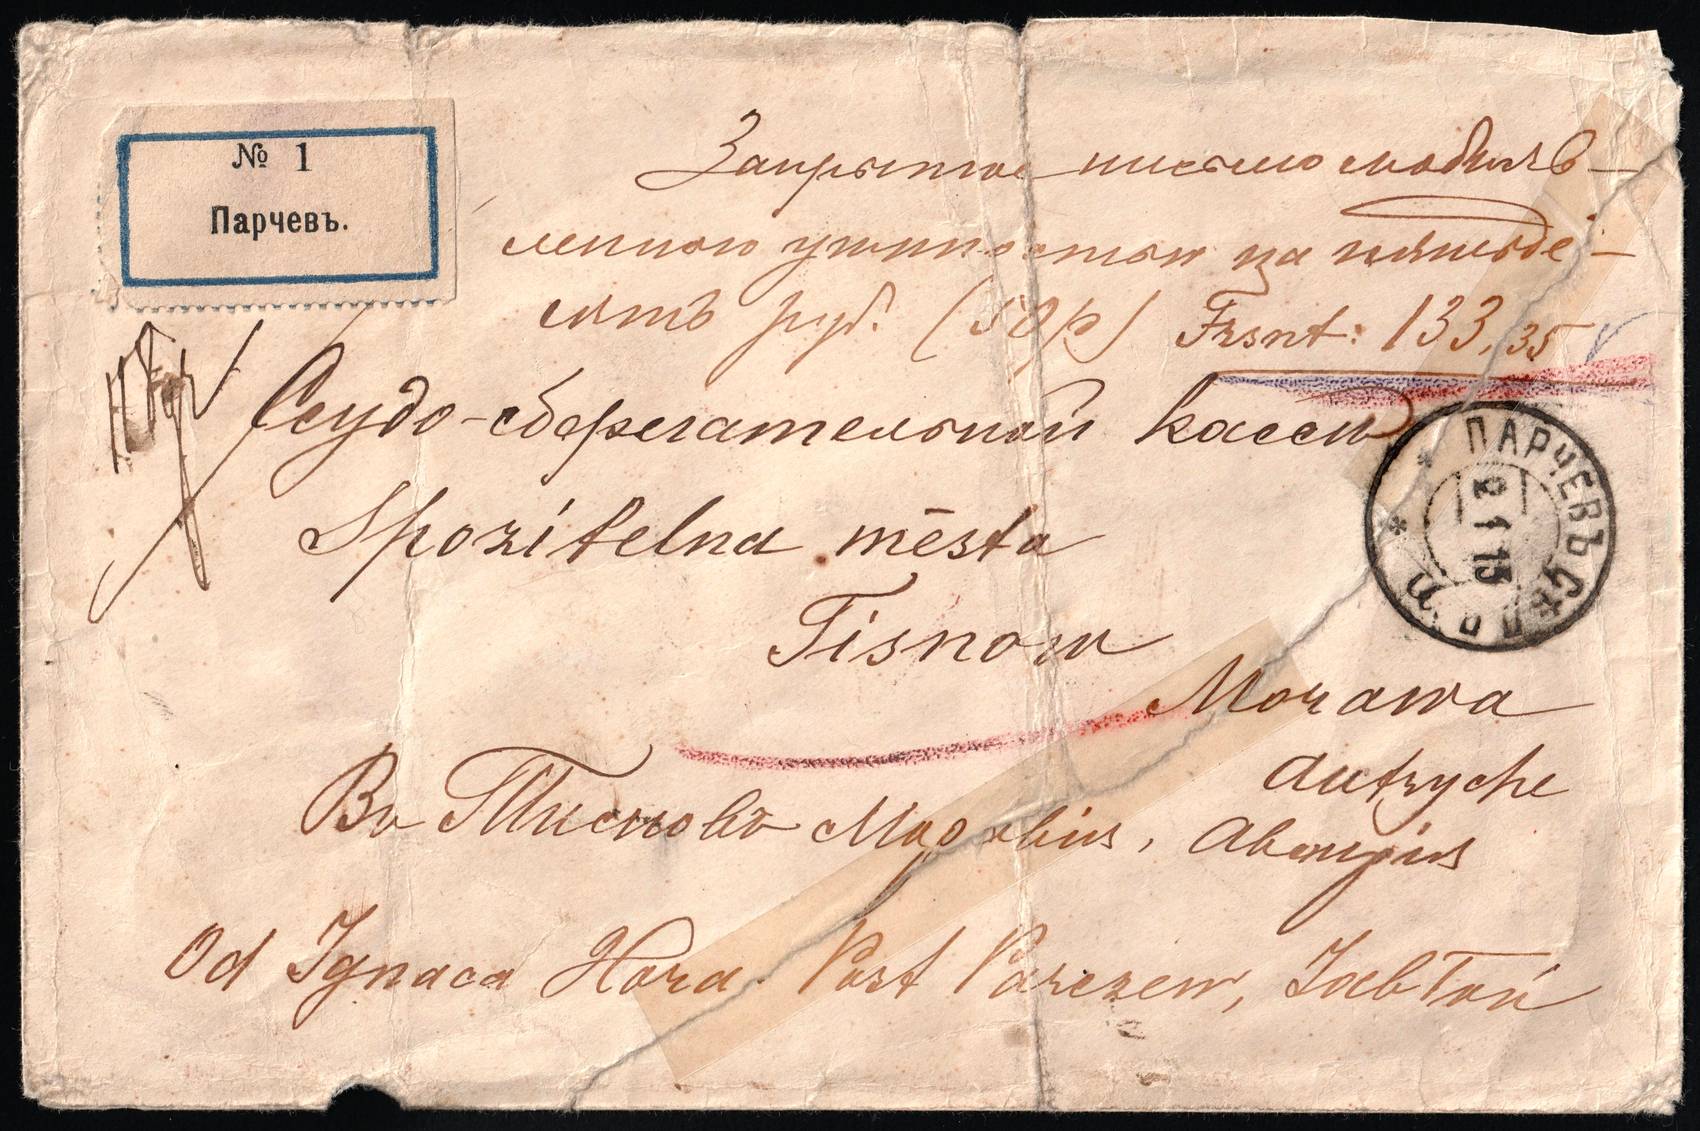 № 1
Парчевъ.
Закрытое письмо съ объяв-
ленною цѣнностью на пятьде-
сятъ руб. (50 р) Frsnt: 133,35
Ссудо-сберегательной кассы
Spořitelna města
Tisnow
Morawa
Autryche
Въ Тисновъ Моравія, Австрія
Od Ignaca Hora Post Parczew, Jabłoń
ПАРЧЕВЪ СѢД.
2 1 13